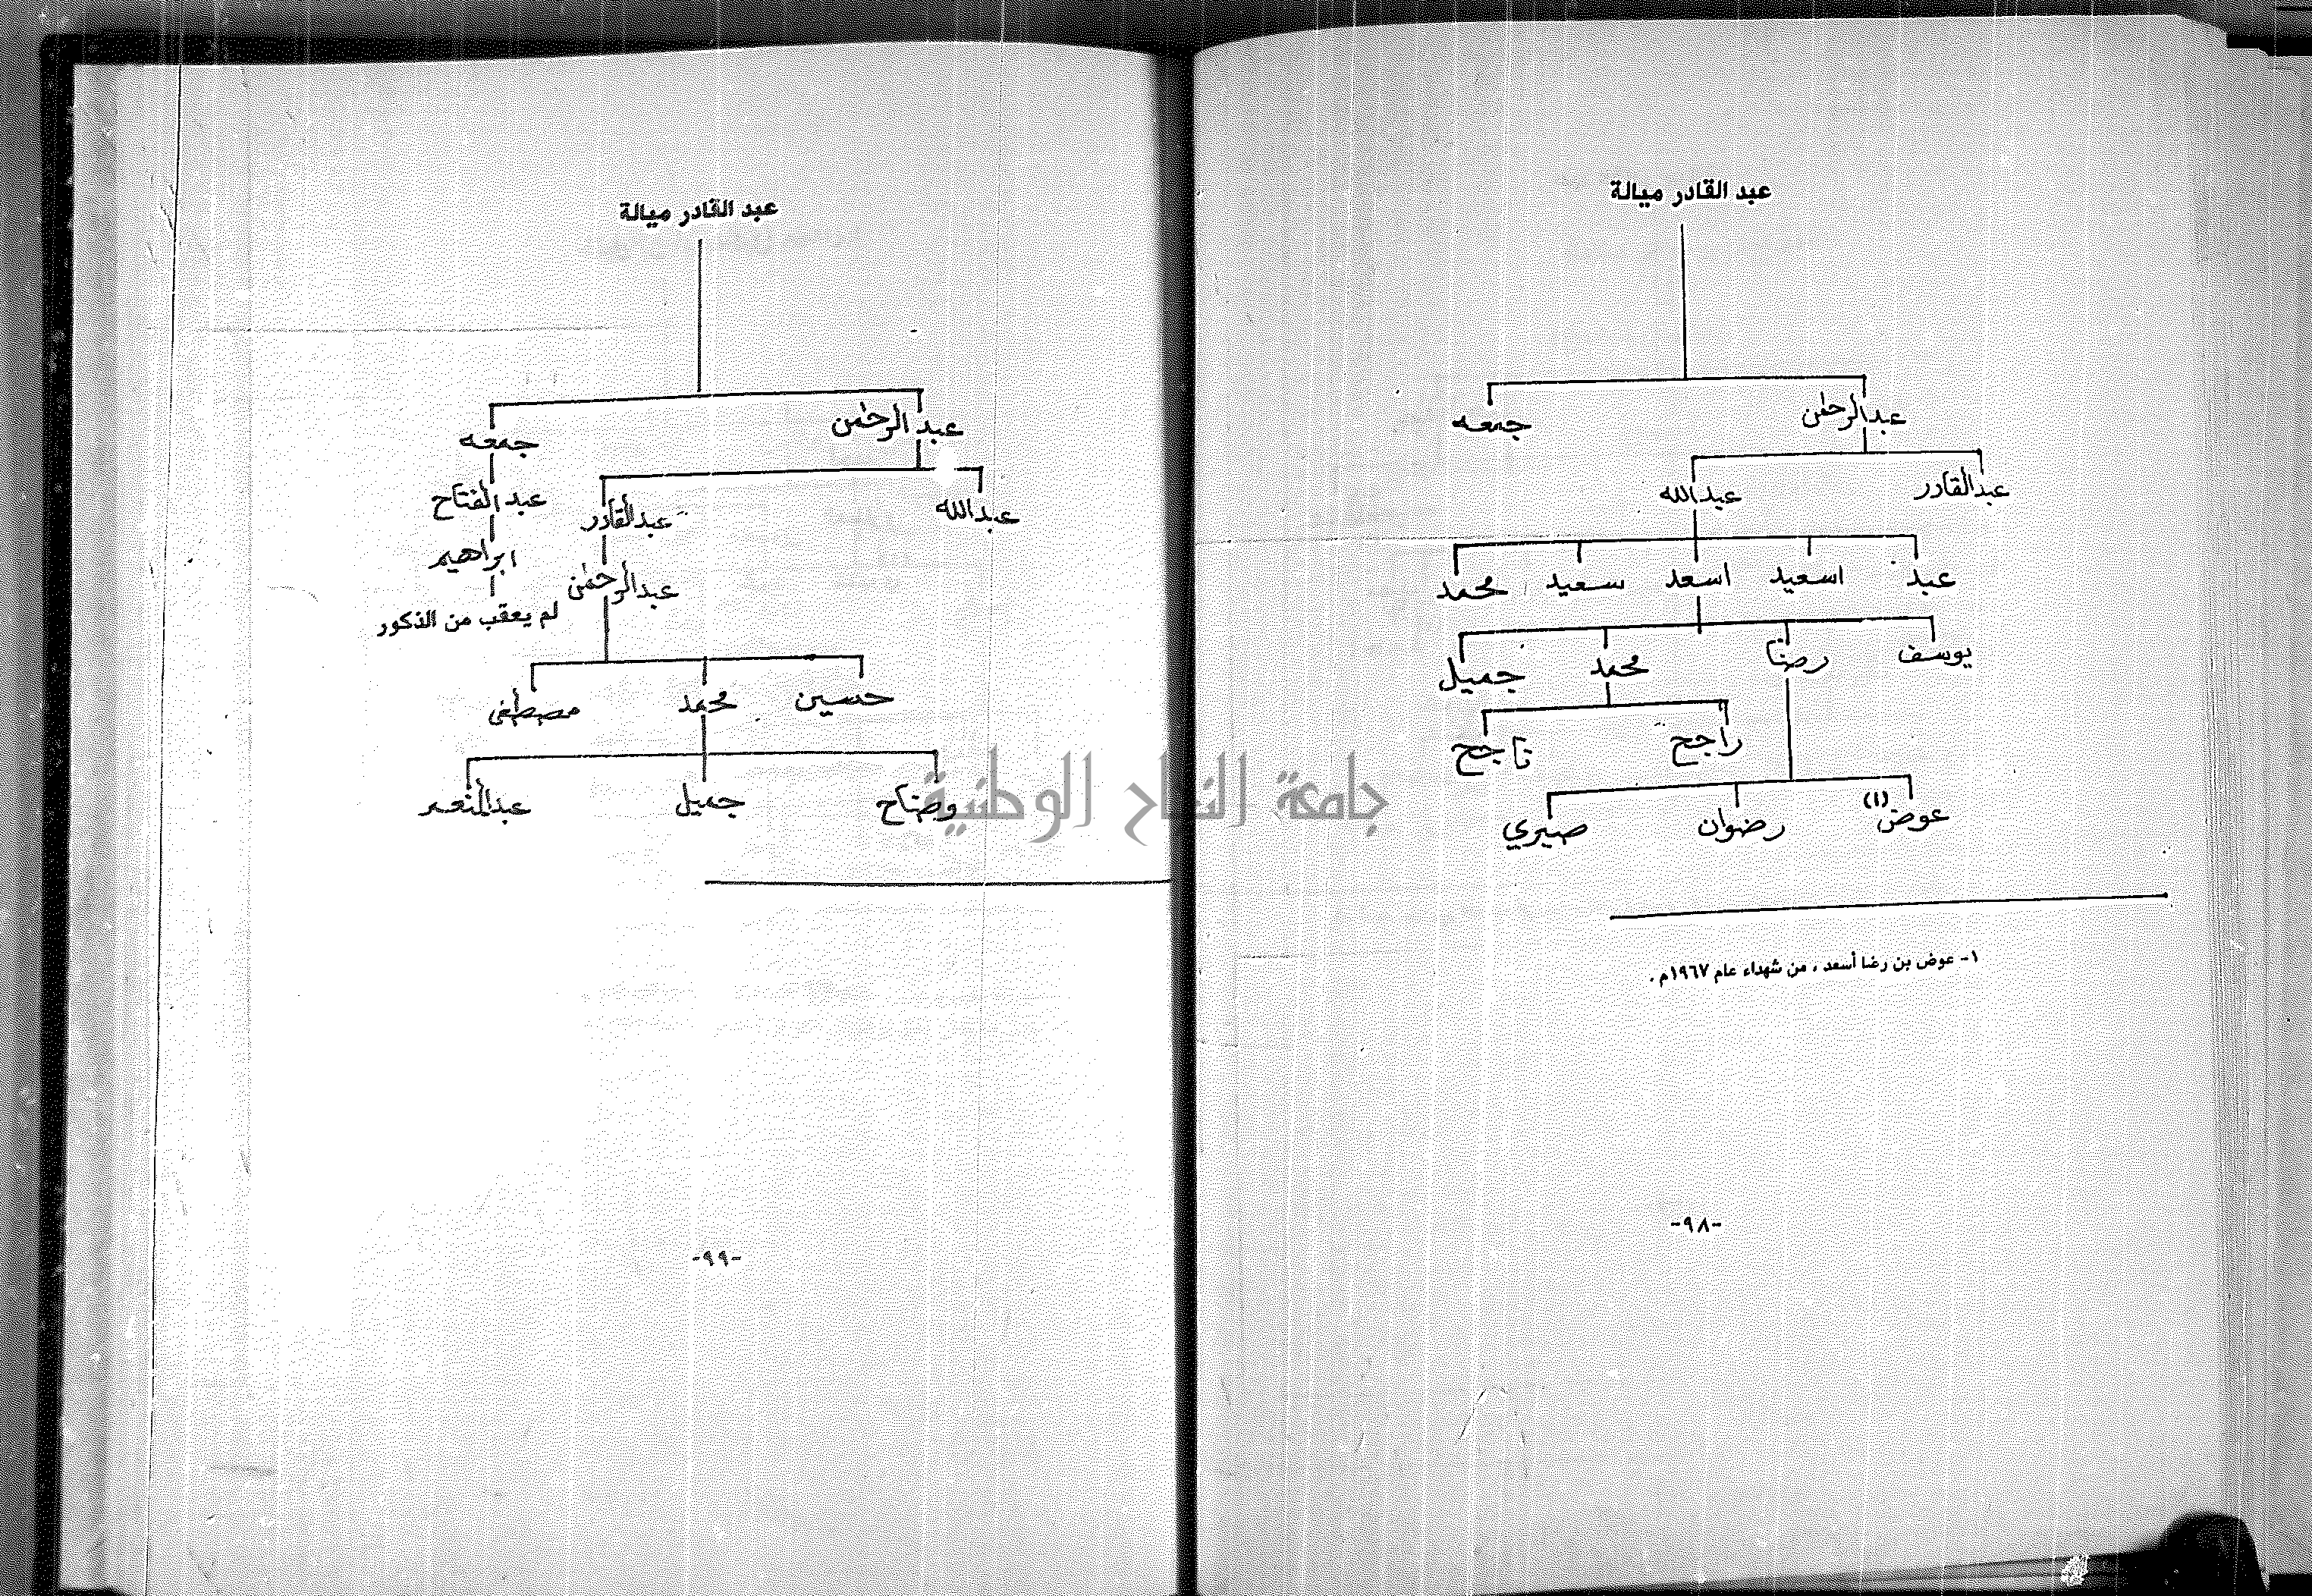 عبد القادر ميالة
عبدالرحمن جمعه
عبدالقادر عبدالله
عبد اسعيد اسعد سعيد محمد
يوسف رضا محمد جميل
راجح ناجح
عوض (١) رضوان صبري
١- عوض بن رضا أسعد ، من شهداء عام ١٩٦٧م .
-٩٨-
عبد القادر ميالة
عبدالرحمن جمعه
عبدالله عبدالقادر عبدالفتاح
عبدالرحمن ابراهيم
لم يعقب من الذكور
حسين محمد مصطفى
وضاح جميل عبدالمنعم
-٩٩-
جامعة النجاح الوطنية